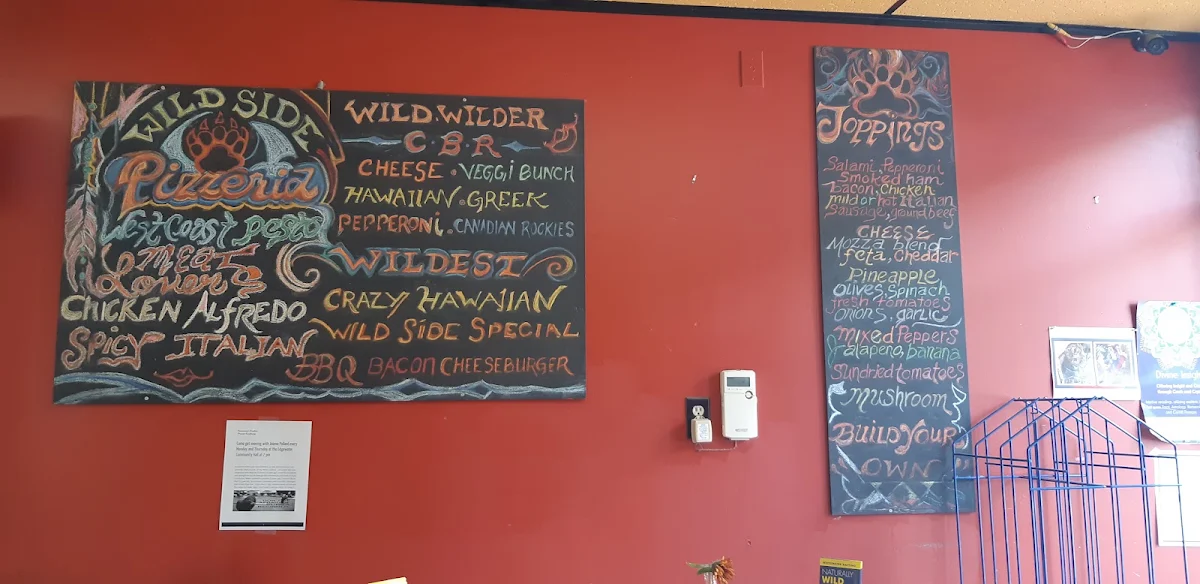 WILD SIDE
Pizzeria
West Coast pesto
MEAT
Lovers
CHICKEN ALFREDO
SPICY ITALIAN
WILD. WILDER
C·B·R
CHEESE · VEGGI BUNCH
HAWAIIAN · GREEK
PEPPERONI. CANADIAN ROCKIES
WILDEST
CRAZY HAWAIIAN
WILD SIDE SPECIAL
BBQ BACON CHEESEBURGER
TOPPINGS
Salami, Pepperoni
Smoked ham
Bacon, Chicken
mild or hot Italian
Sausage, ground beef
CHEESE
Mozza blend
feta, Cheddar
Pineapple
Olives, Spinach
fresh tomatoes
onions, garlic
Mixed Peppers
Jalapeno, banana
Sundried tomatoes
Mushroom
BUILD YOUR
OWN
NATURALLY
WILD